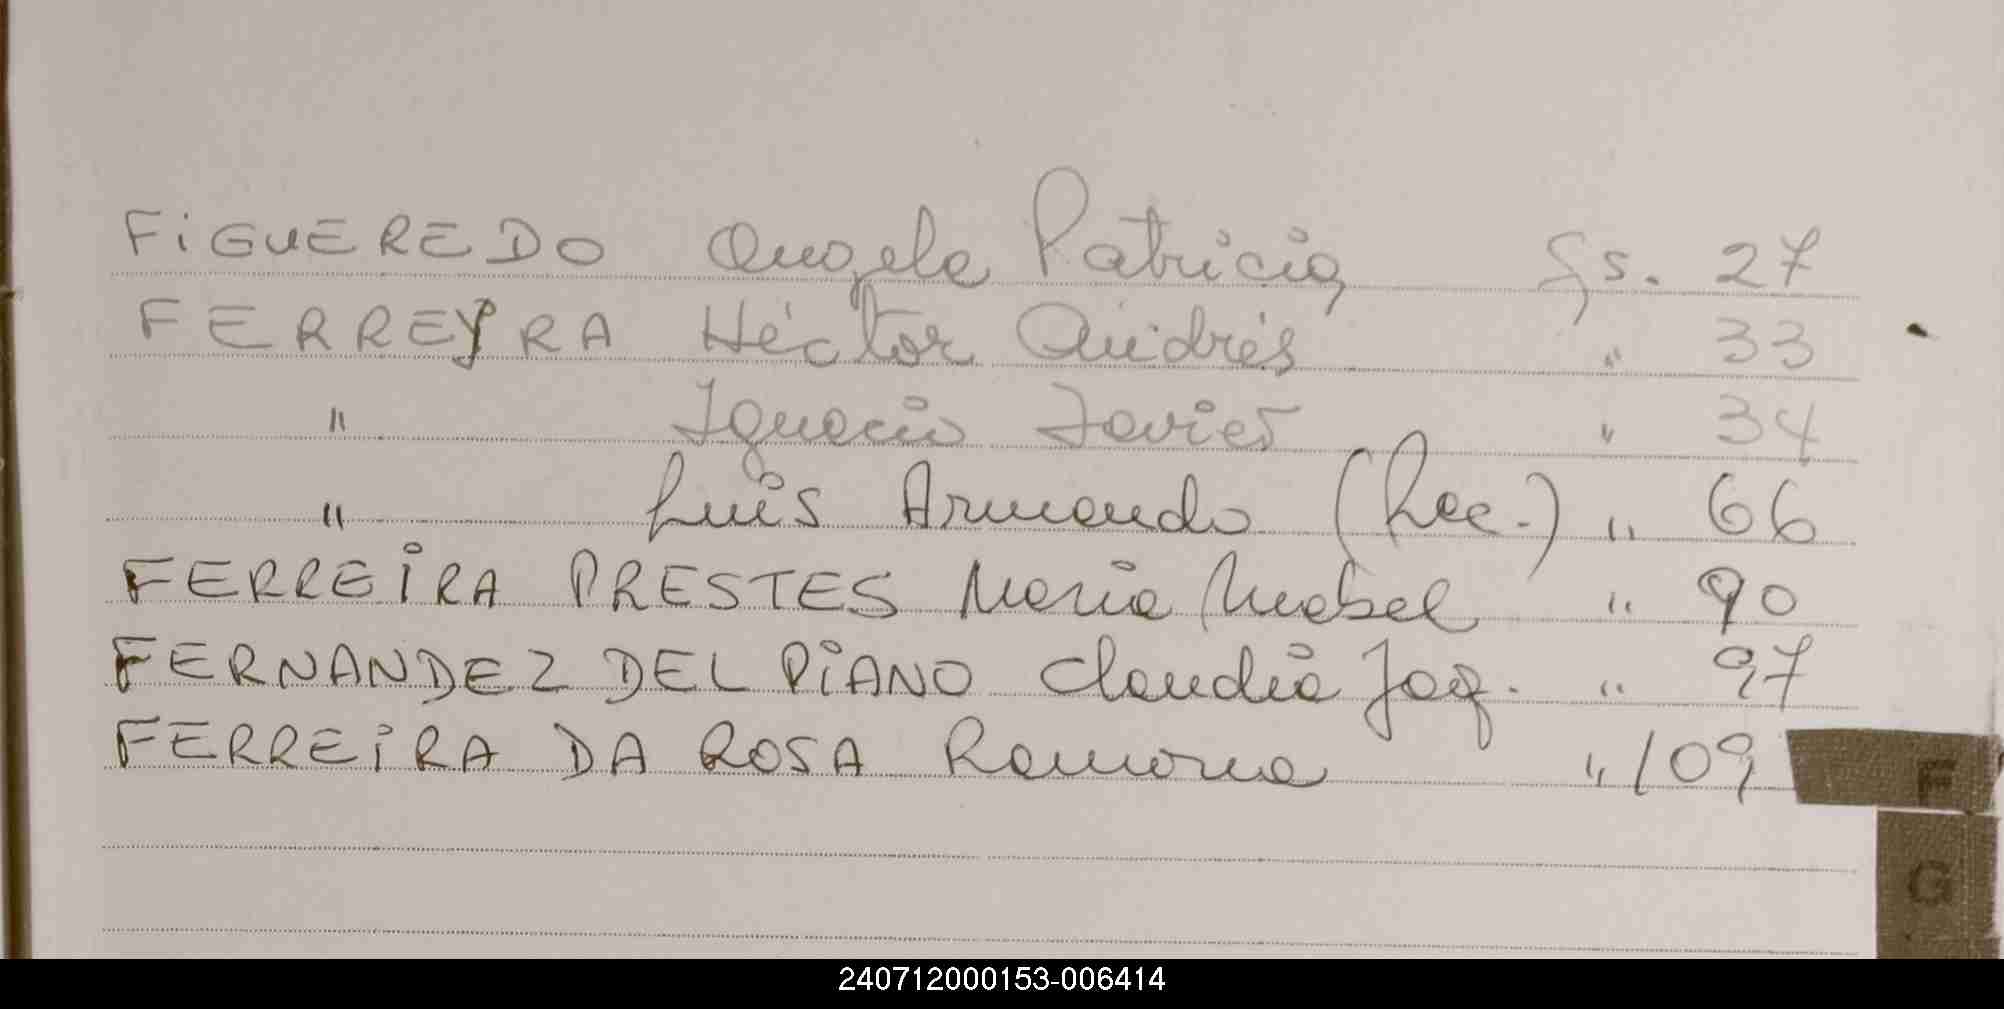 FIGUEREDO Angela Patricia Fs. 27
FERREYRA Héctor Andrés " 33
" Ignacio Javier " 34
" Luis Armando (Rec.) " 66
FERREIRA PRESTES María Mabel " 90
FERNANDEZ DEL PIANO Claudia Jaq. " 97
FERREIRA DA ROSA Ramona " 109
F
G
240712000153-006414